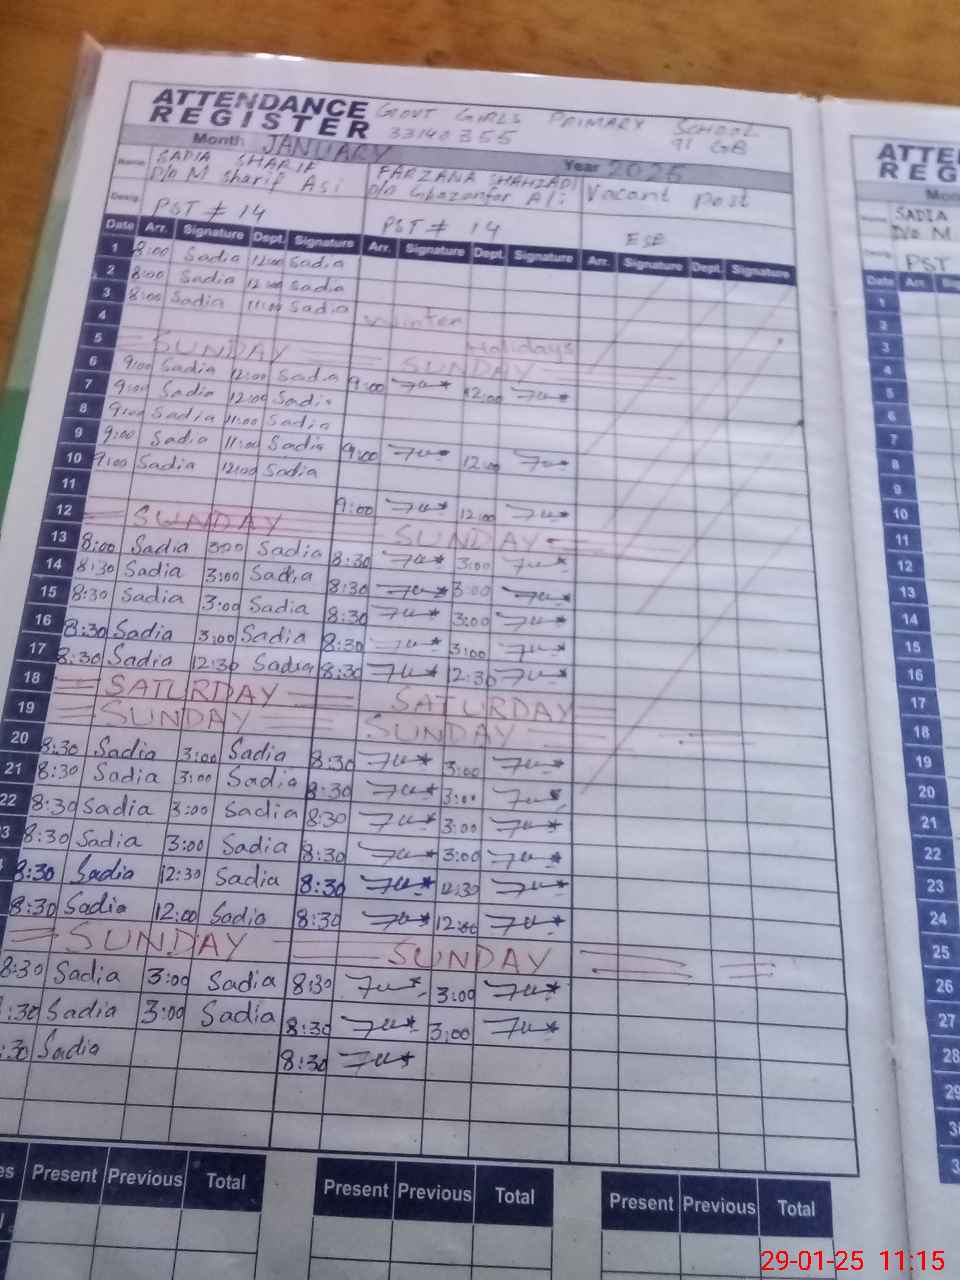 ATTENDANCE REGISTER GOVT GIRLS PRIMARY SCHOOL
33140355 91 GB
Month JANUARY Year 2025
Name SADIA SHARIF FARZANA SHAHZADI Vacant post
D/o M Sharif Asi D/o Ghazanfar Ali
Desig. PST # 14 PST # 14 ESE
Date Arr. Signature Dept. Signature Arr. Signature Dept. Signature Arr. Signature Dept. Signature
1 8:00 Sadia 12:00 Sadia
2 8:00 Sadia 12:00 Sadia
3 8:00 Sadia 11:00 Sadia
4 Winter Holidays
5 SUNDAY SUNDAY
6 9:00 Sadia 12:00 Sadia 9:00 12:00
7 9:00 Sadia 12:00 Sadia
8 9:00 Sadia 11:00 Sadia
9 9:00 Sadia 11:00 Sadia 9:00 12:00
10 9:00 Sadia 12:00 Sadia
11 9:00 12:00
12 SUNDAY SUNDAY
13 8:00 Sadia 3:00 Sadia 8:30 3:00
14 8:30 Sadia 3:00 Sadia 8:30 3:00
15 8:30 Sadia 3:00 Sadia 8:30 3:00
16 8:30 Sadia 3:00 Sadia 8:30 3:00
17 8:30 Sadia 12:30 Sadia 8:30 12:30
18 SATURDAY SATURDAY
19 SUNDAY SUNDAY
20 8:30 Sadia 3:00 Sadia 8:30 3:00
21 8:30 Sadia 3:00 Sadia 8:30 3:00
22 8:30 Sadia 3:00 Sadia 8:30 3:00
3 8:30 Sadia 3:00 Sadia 8:30 3:00
8:30 Sadia 12:30 Sadia 8:30 12:30
8:30 Sadia 12:00 Sadia 8:30 12:00
SUNDAY SUNDAY
8:30 Sadia 3:00 Sadia 8:30 3:00
:30 Sadia 3:00 Sadia 8:30 3:00
:30 Sadia 8:30
es Present Previous Total Present Previous Total Present Previous Total
ATTE
REG
Mo
Name SADIA
D/o M
Desig. PST
Date Arr. Si
1
2
3
4
5
6
7
8
9
10
11
12
13
14
15
16
17
18
19
20
21
22
23
24
25
26
27
28
29
3
3
29-01-25 11:15